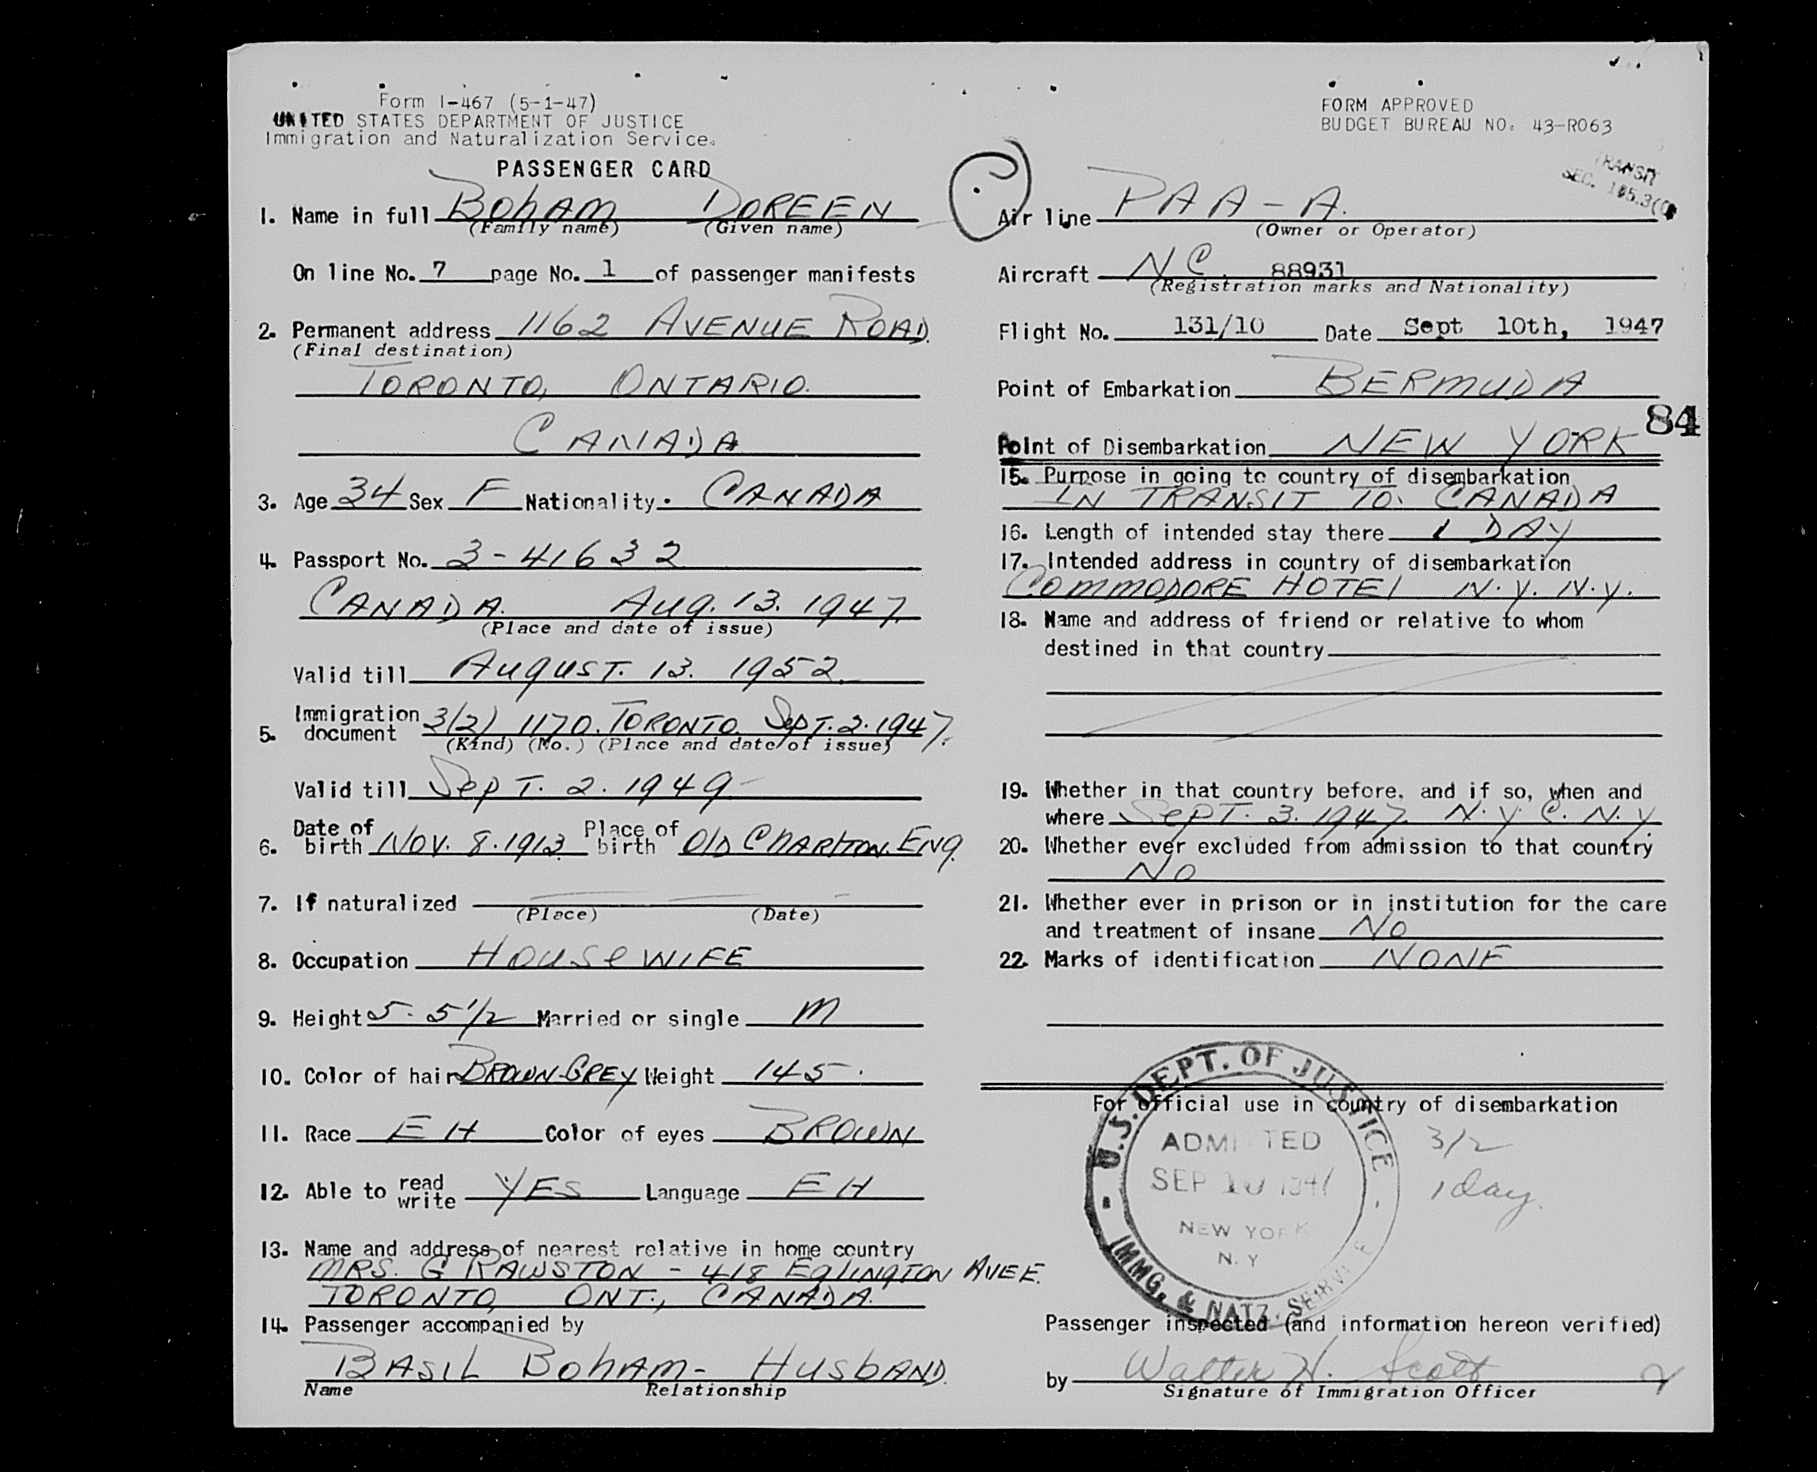 Form I-467 (5-1-47)
UNITED STATES DEPARTMENT OF JUSTICE
Immigration and Naturalization Service.
PASSENGER CARD
FORM APPROVED
BUDGET BUREAU NO. 43-R063
TRANSIT
SEC.
1. Name in full BOhAM DOREEN
(Family name) (Given name)
On line No. 7 page No. 1 of passenger manifests
2. Permanent address 1162 AVENUE ROAD.
(Final destination)
TORONTO, ONTARIO.
CANADA
3. Age 34 Sex F Nationality. CANADA
4. Passport No. 3-41632
CANADA. AUG. 13. 1947.
(Place and date of issue)
Valid till AUGUST. 13. 1952.
5. Immigration document 3(2) 1170. TORONTO. SepT. 2. 1947.
(Kind) (No.) (Place and date of issue)
Valid till SepT. 2. 1949
6. Date of birth NOV. 8. 1913 Place of birth OlD CHARlTON. ENG.
7. If naturalized
(Place) (Date)
8. Occupation HOUSeWIFE
9. Height 5-5 1/2 Married or single M
10. Color of hair BROWN-GREY Weight 145.
11. Race EH Color of eyes BROWN
12. Able to read write YES Language EH
13. Name and address of nearest relative in home country
MRS. G RAWSTON - 418 EGLINGTON AVE E.
TORONTO, ONT., CANADA.
14. Passenger accompanied by
BASIL BOhAM - HUSbAND.
Name Relationship
Air line PAA-A.
(Owner or Operator)
Aircraft NC. 88931
(Registration marks and Nationality)
Flight No. 131/10 Date Sept 10th, 1947
Point of Embarkation BERMUDA
84
Point of Disembarkation NEW YORK
15. Purpose in going to country of disembarkation
IN TRANSIT TO CANADA
16. Length of intended stay there 1 DAY
17. Intended address in country of disembarkation
COMMODORE HOTEl N.Y. N.Y.
18. Name and address of friend or relative to whom
destined in that country
19. Whether in that country before, and if so, when and
where SEPT. 3. 1947. N.Y.C. N.Y.
20. Whether ever excluded from admission to that country
NO
21. Whether ever in prison or in institution for the care
and treatment of insane NO
22. Marks of identification NONE
For official use in country of disembarkation
U.S. DEPT. OF JUSTICE
ADMITTED
SEP 10 1947
NEW YORK
N.Y
IMMG. & NATZ. SERVICE
3/2
1 day.
Passenger inspected (and information hereon verified)
by Walter H. Scott
Signature of Immigration Officer